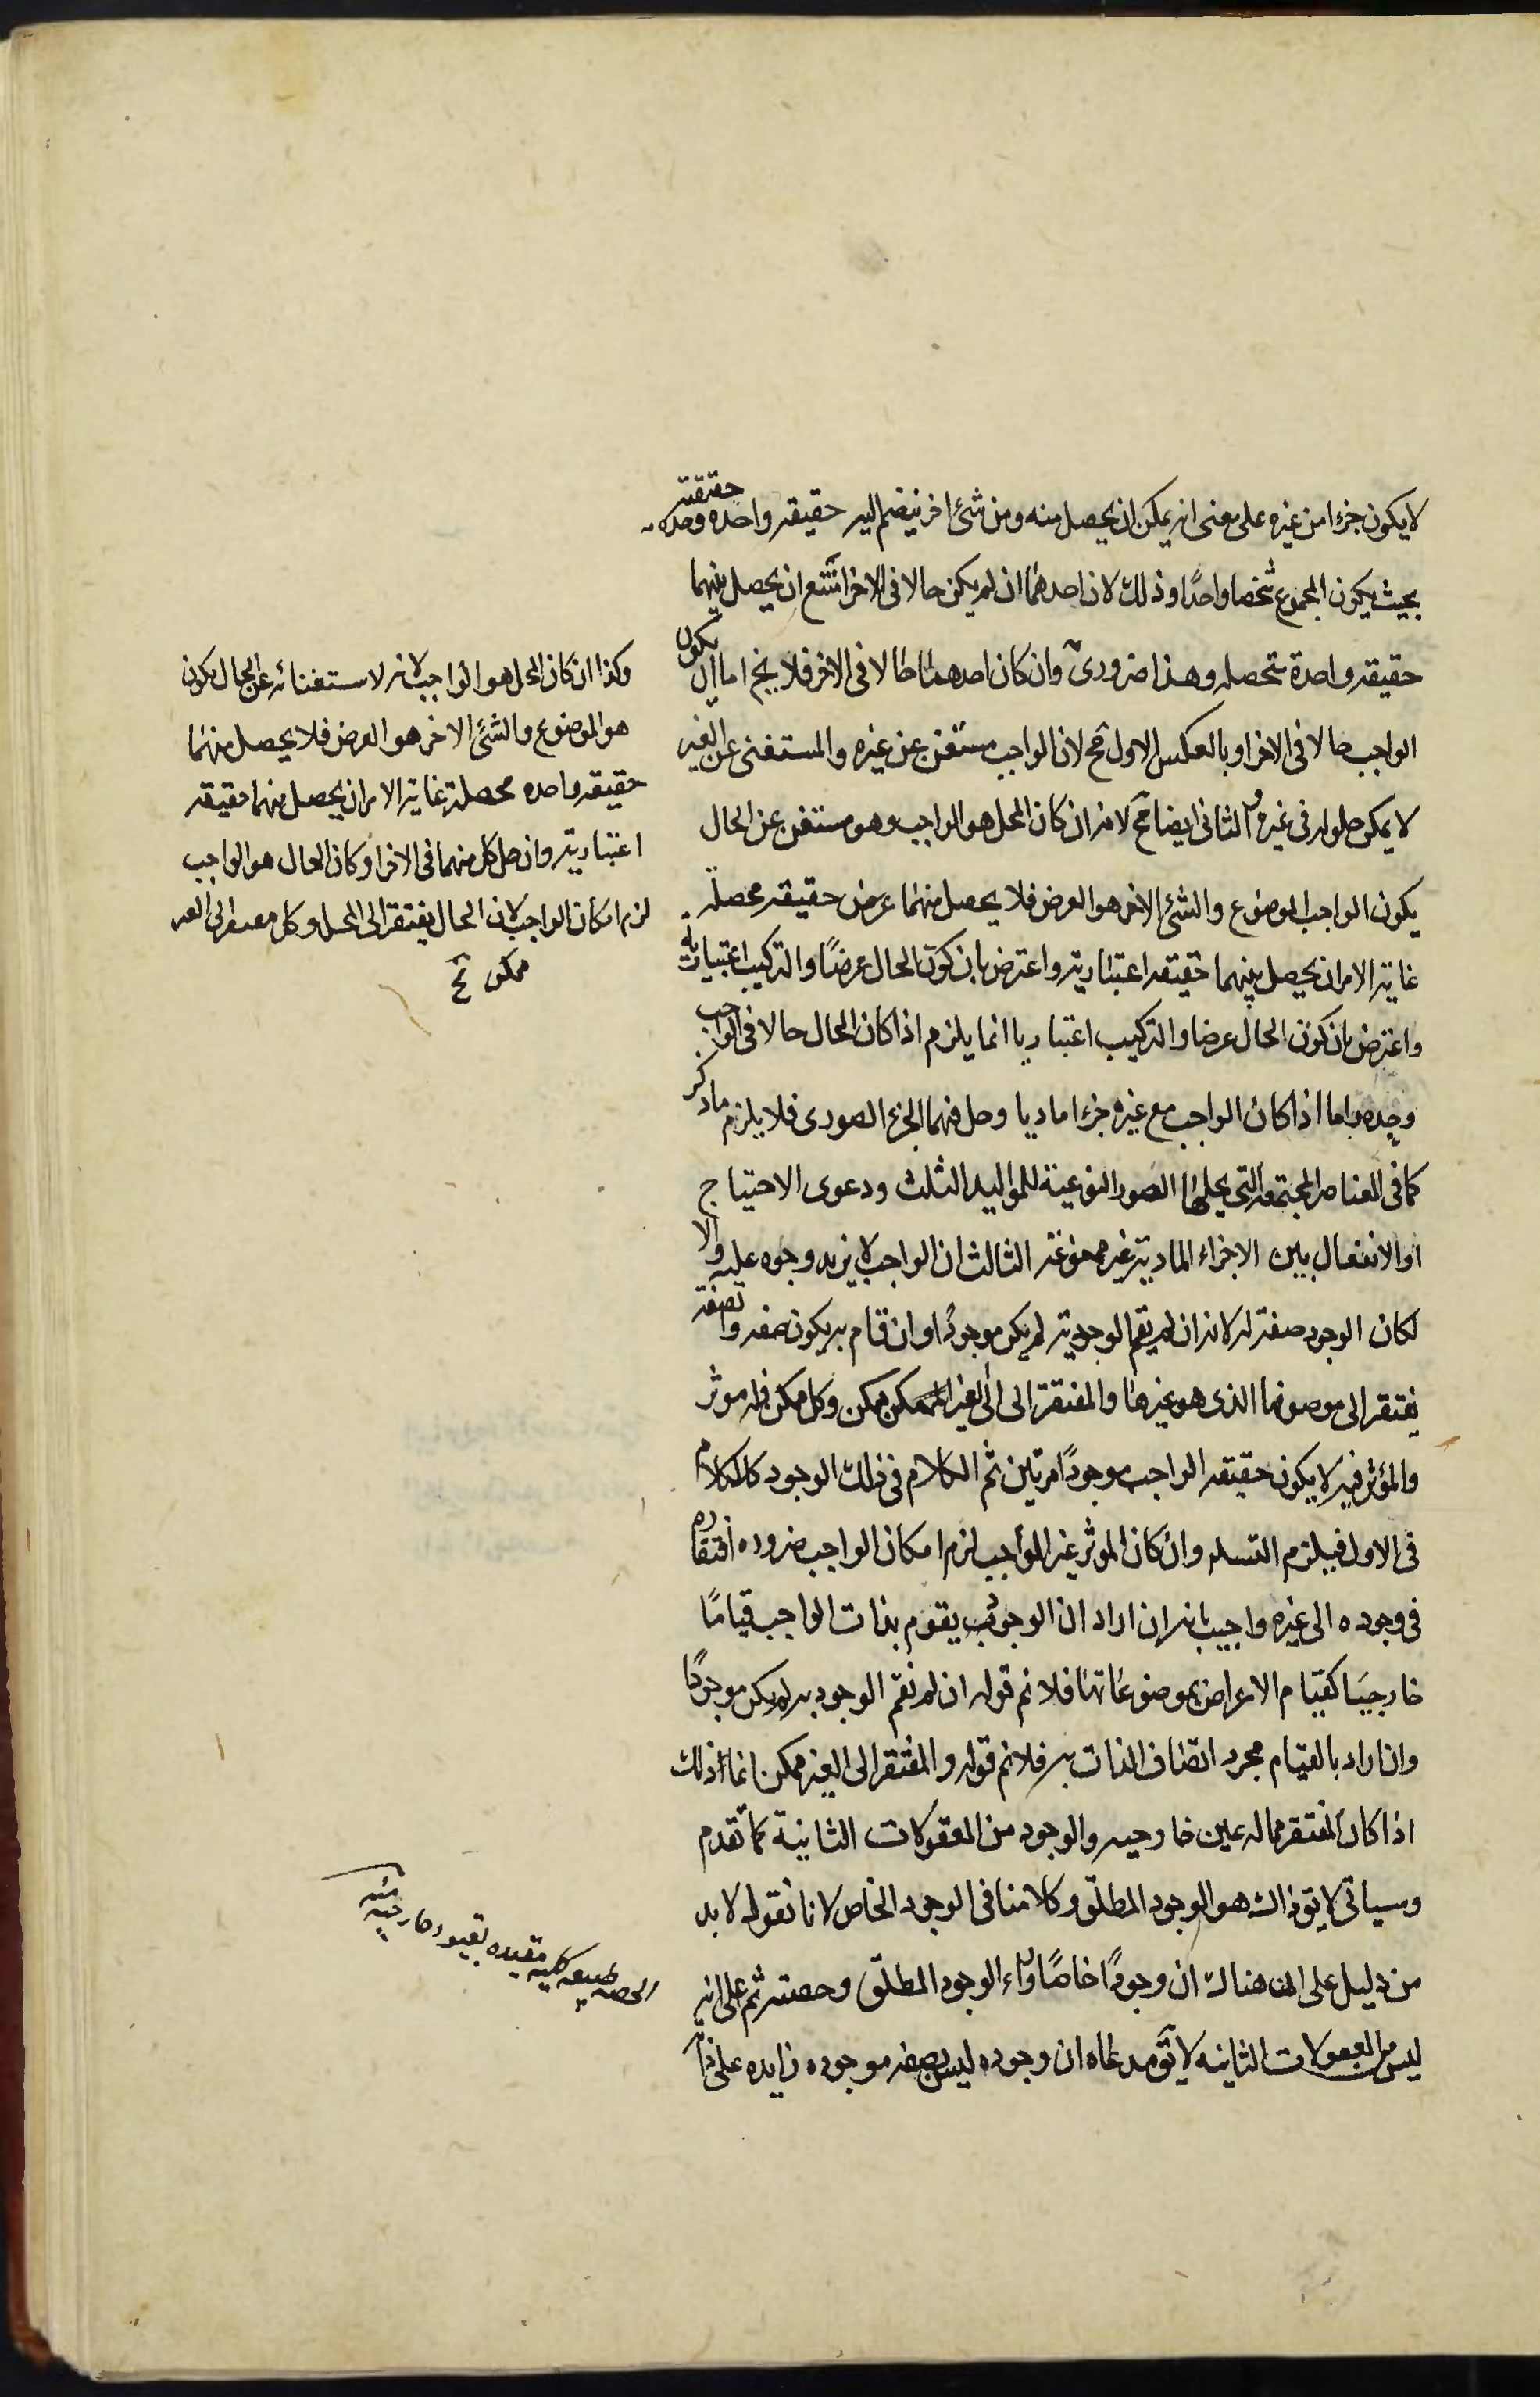 لا يكون جزءا من غيره على معنى انه يمكن ان يحصل منه ومن شئ اخر ينضم اليه حقيقه واحده وحده حقيقته
بحيث يكون المجموع شخصا واحدًا وذلك لان احدهما ان لم يكن حالا فى الاخر امتنع ان يحصل منهما
حقيقه واحدة متحصله وهذا ضرورى وان كان احدهما حالا فى الاخر فلا يخ اما ان يكون
الواجب حالا فى الاخر او بالعكس الاول مح لان الواجب مستغن عن غيره والمستغنى عن الغير
لا يمكن حلوله فى غيره والثانى ايضا مح لانه ان كان المحل هو الواجب وهو مستغن عن الحال
يكون الواجب الموضوع والشئ الاخر هو العرض فلا يحصل منهما عرض حقيقه محصلة
غاية الامر ان يحصل منهما حقيقه اعتبارية واعترض بان كون الحال عرضًا والتركيب اعتباريا
واعترض بان كون الحال عرضا والتركيب اعتباريا انما يلزم اذا كان الحال حالا فى الواجب
وحده واما اذا كان الواجب مع غيره جزءا ماديا وحل فيهما الجزء الصورى فلا يلزم ما ذكر
كما فى العناصر المجتمعة التى يحلها الصور النوعية للمواليد الثلث ودعوى الاحتياج
او الانفعال بين الاجزاء المادية غير مسموعة الثالث ان الواجب لا يزيد وجوده عليه والا
لكان الوجود صفة له لانه ان لم يقم الوجود به لم يكن موجودًا وان قام به يكون صفه والصفة
يفتقر الى موصوفها الذى هو غيرها والمفتقرة الى الى الغير ممكن وكل ممكن فله موثر
والمؤثر فيه لا يكون حقيقه الواجب موجودًا مرتين ثم الكلام فى ذلك الوجود كالكلام
فى الاول فيلزم التسلسل وان كان الموثر غير الواجب لزم امكان الواجب ضروره افتقاره
فى وجوده الى غيره واجيب بانه ان اراد ان الوجود يقوم بذات الواجب قيامًا
خارجيا كقيام الاعراض بموضوعاتها فلا نم قوله ان لم نقم الوجود به لم يكن موجودًا
وان اراد بالقيام مجرد اتصاف الذات به فلا نم قوله والمفتقر الى الغير ممكن انما ذلك
اذا كان المفتقر مما له عين خارجيه والوجود من المعقولات الثانية كما تقدم
وسياتى لا يق ذاك هو الوجود المطلق وكلامنا فى الوجود الخاص لانا نقول لا بد
من دليل على ان هناك ان وجودًا خاصًا وراء الوجود المطلق وحصته ثم على انه
ليس من المعقولات الثانيه لا يق مدعاه ان وجوده ليس بصفه موجوده زايده على ذا
وكذا ان كان المحل هو الواجب لانه لاستغنائه عن الحال يكون
هو الموضوع والشئ الاخر هو العرض فلا يحصل منهما
حقيقه واحده محصلة غاية الامر ان يحصل منهما حقيقه
اعتبارية وان حل كل منهما فى الاخر او كان الحال هو الواجب
لزم امكان الواجب لان الحال يفتقر الى المحل وكل مفتقر الى الغير
ممكن
الحصه طبيعه كليه مقيده بقيود خارجيه
منه